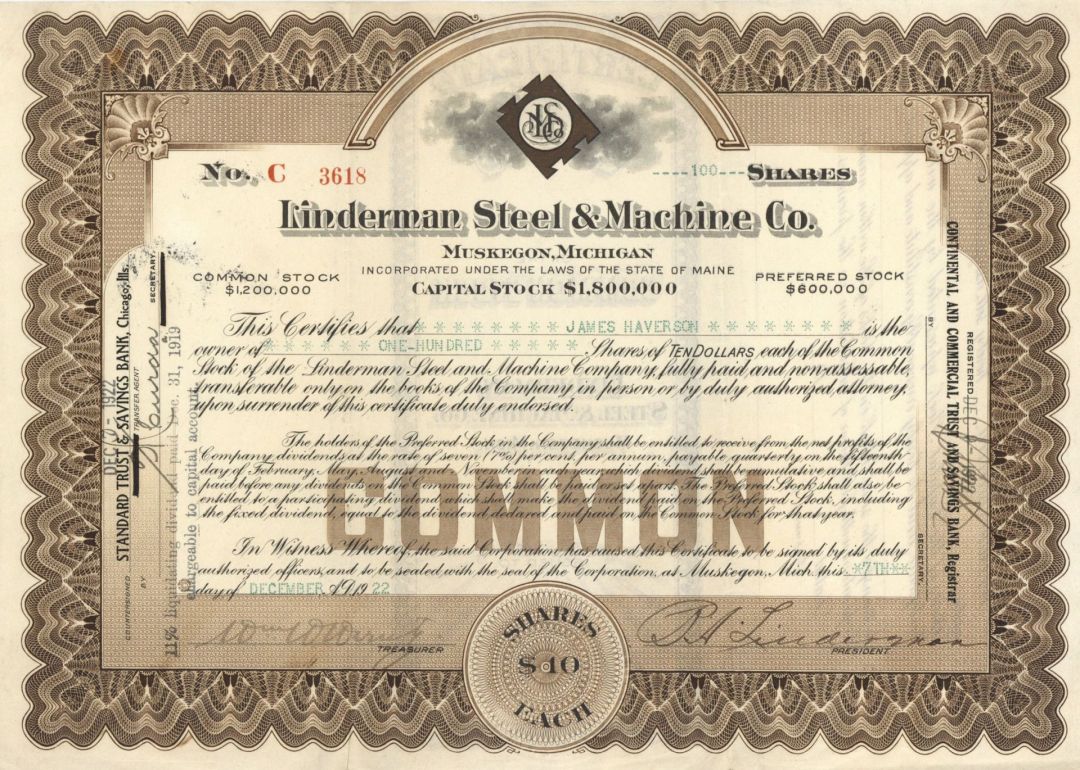 No. C 3618
----100--- SHARES
Linderman Steel & Machine Co.
MUSKEGON, MICHIGAN
INCORPORATED UNDER THE LAWS OF THE STATE OF MAINE
COMMON STOCK
$1,200,000
CAPITAL STOCK $1,800,000
PREFERRED STOCK
$600,000
This Certifies that * * * * * * * * JAMES HAVERSON * * * * * * * * is the
owner of * * * * * * ONE-HUNDRED * * * * * Shares of TEN DOLLARS each of the Common
Stock of the Linderman Steel and Machine Company, fully paid and non-assessable,
transferable only on the books of the Company in person or by duly authorized attorney,
upon surrender of this certificate duly endorsed.
The holders of the Preferred Stock in the Company shall be entitled to receive from the net profits of the
Company dividends at the rate of seven (7%) per cent. per annum, payable quarterly on the fifteenth
day of February, May, August and November in each year, which dividends shall be cumulative and shall be
paid before any dividends on the Common Stock shall be paid or set apart. The Preferred Stock shall also be
entitled to a participating dividend which shall make the dividend paid on the Preferred Stock, including
the fixed dividend, equal to the dividend declared and paid on the Common Stock for that year.
COMMON
In Witness Whereof, the said Corporation has caused this Certificate to be signed by its duly
authorized officers, and to be sealed with the seal of the Corporation, at Muskegon, Mich. this **7TH**
day of DECEMBER A.D. 1922
TREASURER
SHARES
$10
EACH
P. A. Linderman
PRESIDENT
COUNTERSIGNED
DEC 7 - 1922
STANDARD TRUST & SAVINGS BANK, Chicago, Ills.
TRANSFER AGENT
BY
SECRETARY.
11% liquidating dividend paid Dec. 31, 1919
chargeable to capital account.
REGISTERED DEC 1922
CONTINENTAL AND COMMERCIAL TRUST AND SAVINGS BANK, Registrar
BY
SECRETARY.